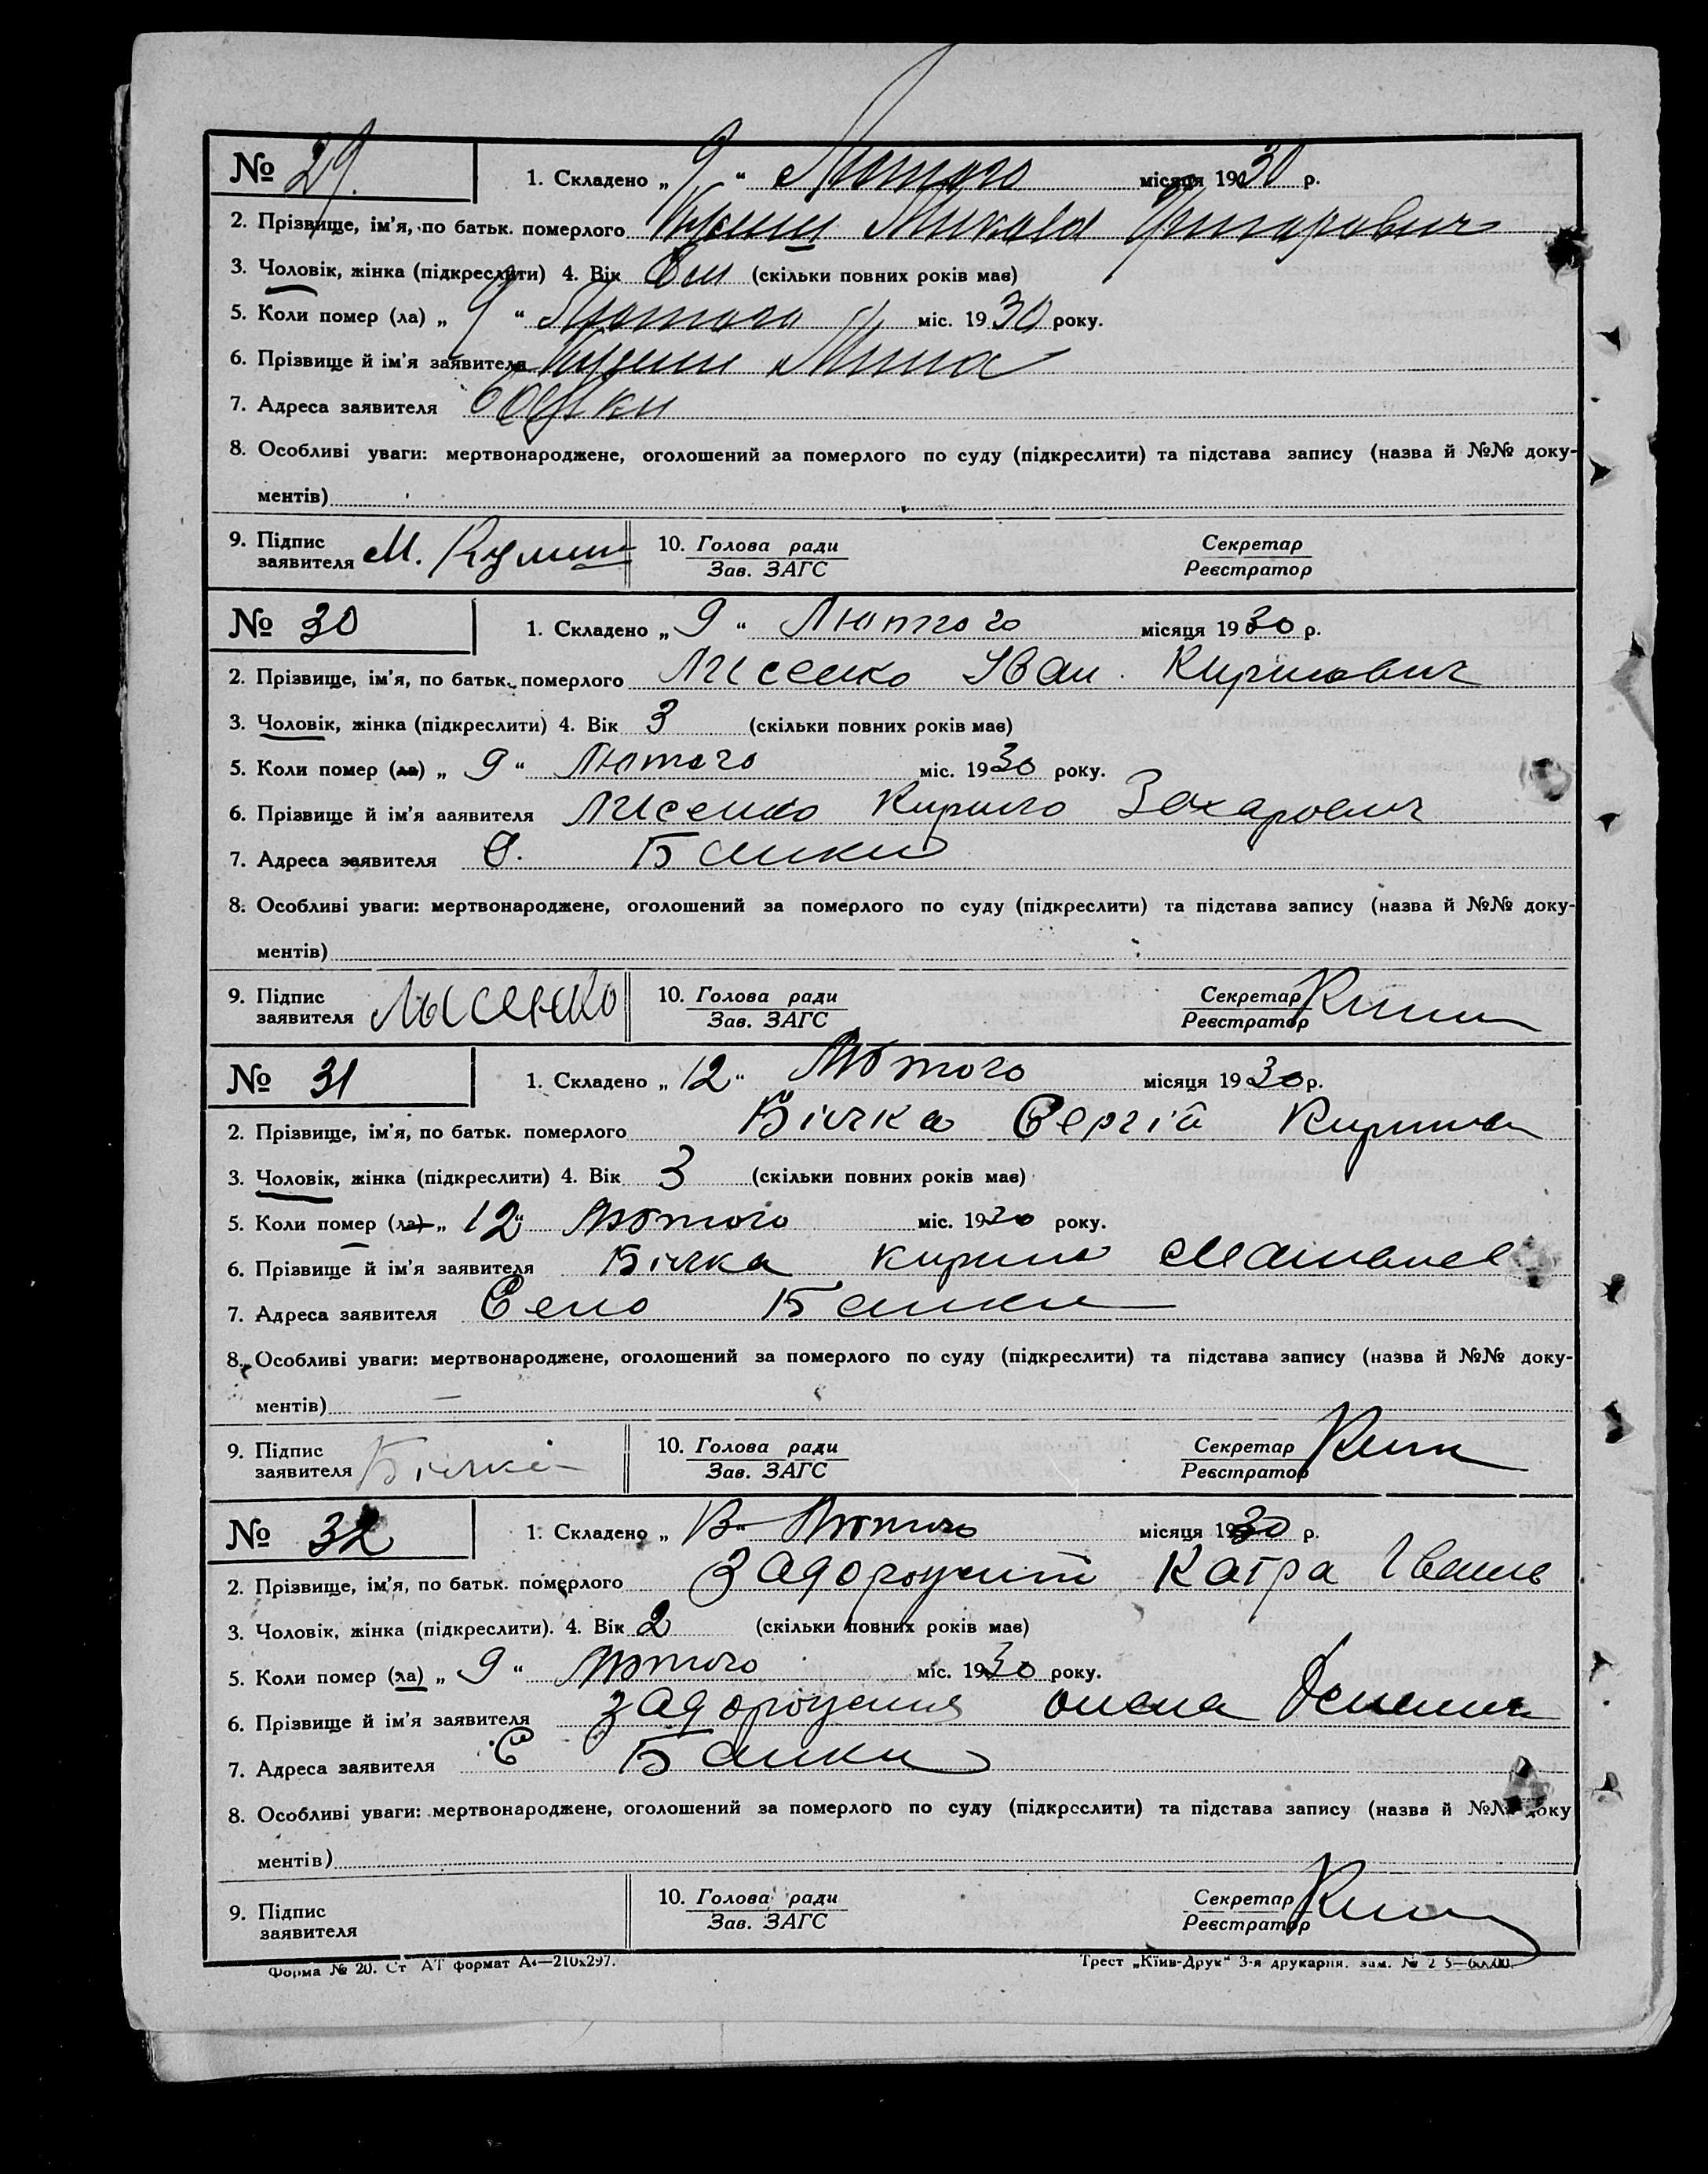 № 29. 1. Складено „ 9 “ Лютого місяця 1930 р.
2. Прізвище, ім'я, по батьк. померлого
3. Чоловік, жінка (підкреслити) 4. Вік (скільки повних років має)
5. Коли помер (ла) „ 9 “ Лютого міс. 1930 року.
6. Прізвище й ім'я заявителя
7. Адреса заявителя
8. Особливі уваги: мертвонароджене, оголошений за померлого по суду (підкреслити) та підстава запису (назва й №№ доку-
ментів)
9. Підпис заявителя М. 10. Голова ради Зав. ЗАГС Секретар Реєстратор
№ 30 1. Складено „ 9 “ Лютого місяця 1930 р.
2. Прізвище, ім'я, по батьк. померлого Лисенко Іван Кирилович
3. Чоловік, жінка (підкреслити) 4. Вік 3 (скільки повних років має)
5. Коли помер (ла) „ 9 “ Лютого міс. 1930 року.
6. Прізвище й ім'я заявителя Лисенко Кирило Захарович
7. Адреса заявителя С. Банки
8. Особливі уваги: мертвонароджене, оголошений за померлого по суду (підкреслити) та підстава запису (назва й №№ доку-
ментів)
9. Підпис заявителя Лысенко 10. Голова ради Зав. ЗАГС Секретар Реєстратор
№ 31 1. Складено „ 12 “ Лютого місяця 1930 р.
2. Прізвище, ім'я, по батьк. померлого Білка Сергій
3. Чоловік, жінка (підкреслити) 4. Вік 3 (скільки повних років має)
5. Коли помер (ла) „ 12 “ Лютого міс. 1930 року.
6. Прізвище й ім'я заявителя Білка Кирило
7. Адреса заявителя Село Банки
8. Особливі уваги: мертвонароджене, оголошений за померлого по суду (підкреслити) та підстава запису (назва й №№ доку-
ментів)
9. Підпис заявителя 10. Голова ради Зав. ЗАГС Секретар Реєстратор
№ 32 1. Складено „ “ Лютого місяця 1930 р.
2. Прізвище, ім'я, по батьк. померлого Катра
3. Чоловік, жінка (підкреслити). 4. Вік 2 (скільки повних років має)
5. Коли помер (ла) „ 9 “ Лютого міс. 1930 року.
6. Прізвище й ім'я заявителя
7. Адреса заявителя С Банки
8. Особливі уваги: мертвонароджене, оголошений за померлого по суду (підкреслити) та підстава запису (назва й №№ доку
ментів)
9. Підпис заявителя 10. Голова ради Зав. ЗАГС Секретар Реєстратор
Форма № 20. Ст АТ формат А4—210x297. Трест „Київ-Друк“ 3-я друкарня. зам. №